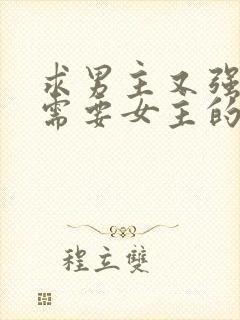 求男主又强
需要女主的
程立雙